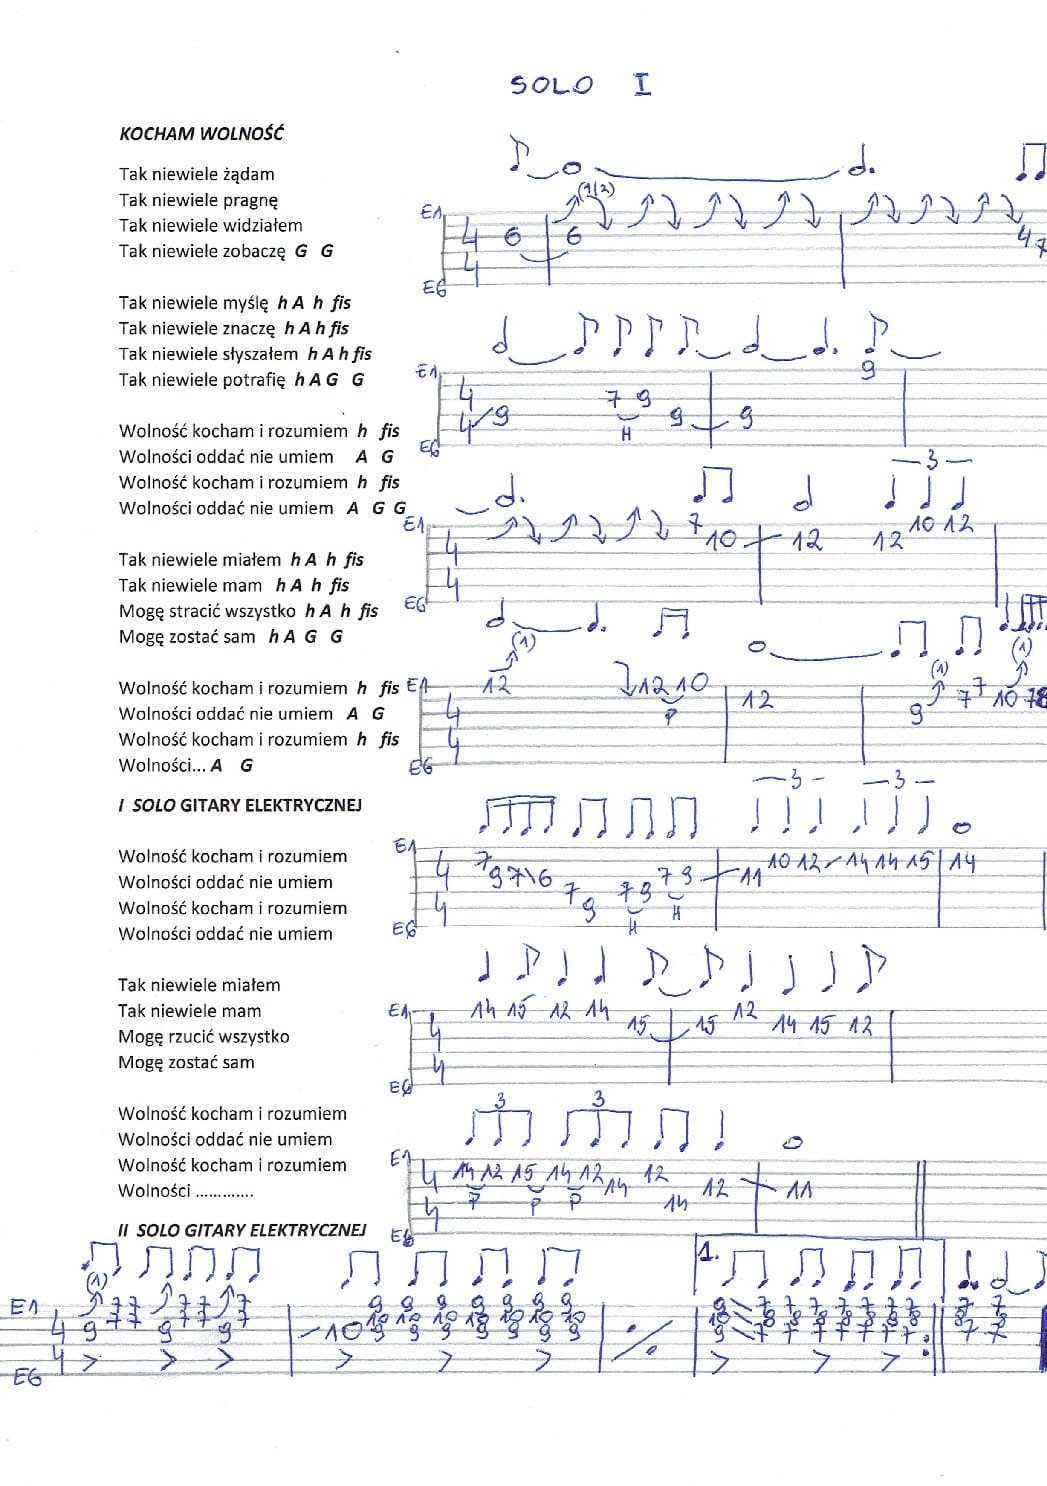 SOLO I
KOCHAM WOLNOŚĆ
Tak niewiele żądam
Tak niewiele pragnę
Tak niewiele widziałem
Tak niewiele zobaczę G G
Tak niewiele myślę h A h fis
Tak niewiele znaczę h A h fis
Tak niewiele słyszałem h A h fis
Tak niewiele potrafię h A G G
Wolność kocham i rozumiem h fis
Wolności oddać nie umiem A G
Wolność kocham i rozumiem h fis
Wolności oddać nie umiem A G G
Tak niewiele miałem h A h fis
Tak niewiele mam h A h fis
Mogę stracić wszystko h A h fis
Mogę zostać sam h A G G
Wolność kocham i rozumiem h fis
Wolności oddać nie umiem A G
Wolność kocham i rozumiem h fis
Wolności... A G
I SOLO GITARY ELEKTRYCZNEJ
Wolność kocham i rozumiem
Wolności oddać nie umiem
Wolność kocham i rozumiem
Wolności oddać nie umiem
Tak niewiele miałem
Tak niewiele mam
Mogę rzucić wszystko
Mogę zostać sam
Wolność kocham i rozumiem
Wolności oddać nie umiem
Wolność kocham i rozumiem
Wolności .............
II SOLO GITARY ELEKTRYCZNEJ
(1/2)
E1
4 6 6 4 7
4
E6
E1 9
4 7 9
4 9 H 9 9
E6
3
E1 7 10 12 12 10 12
4
4
E6
(1) (1) (1)
E1 12 12 10 12 9 7 7 10
4 P
4
E6
3 3
E1 7 9 7 6 7 9 7 9 7 9 11 10 12 14 14 15 14
4 H H
4
E6
E1 14 15 12 14 15 15 12 14 15 12
4
4
E6
3 3
E1 14 12 15 14 12 14 12 14 12 11
4 P P P
4
E6
(1) 1.
E1
4 9 9 9 10
4 > > > > > > > > >
E6